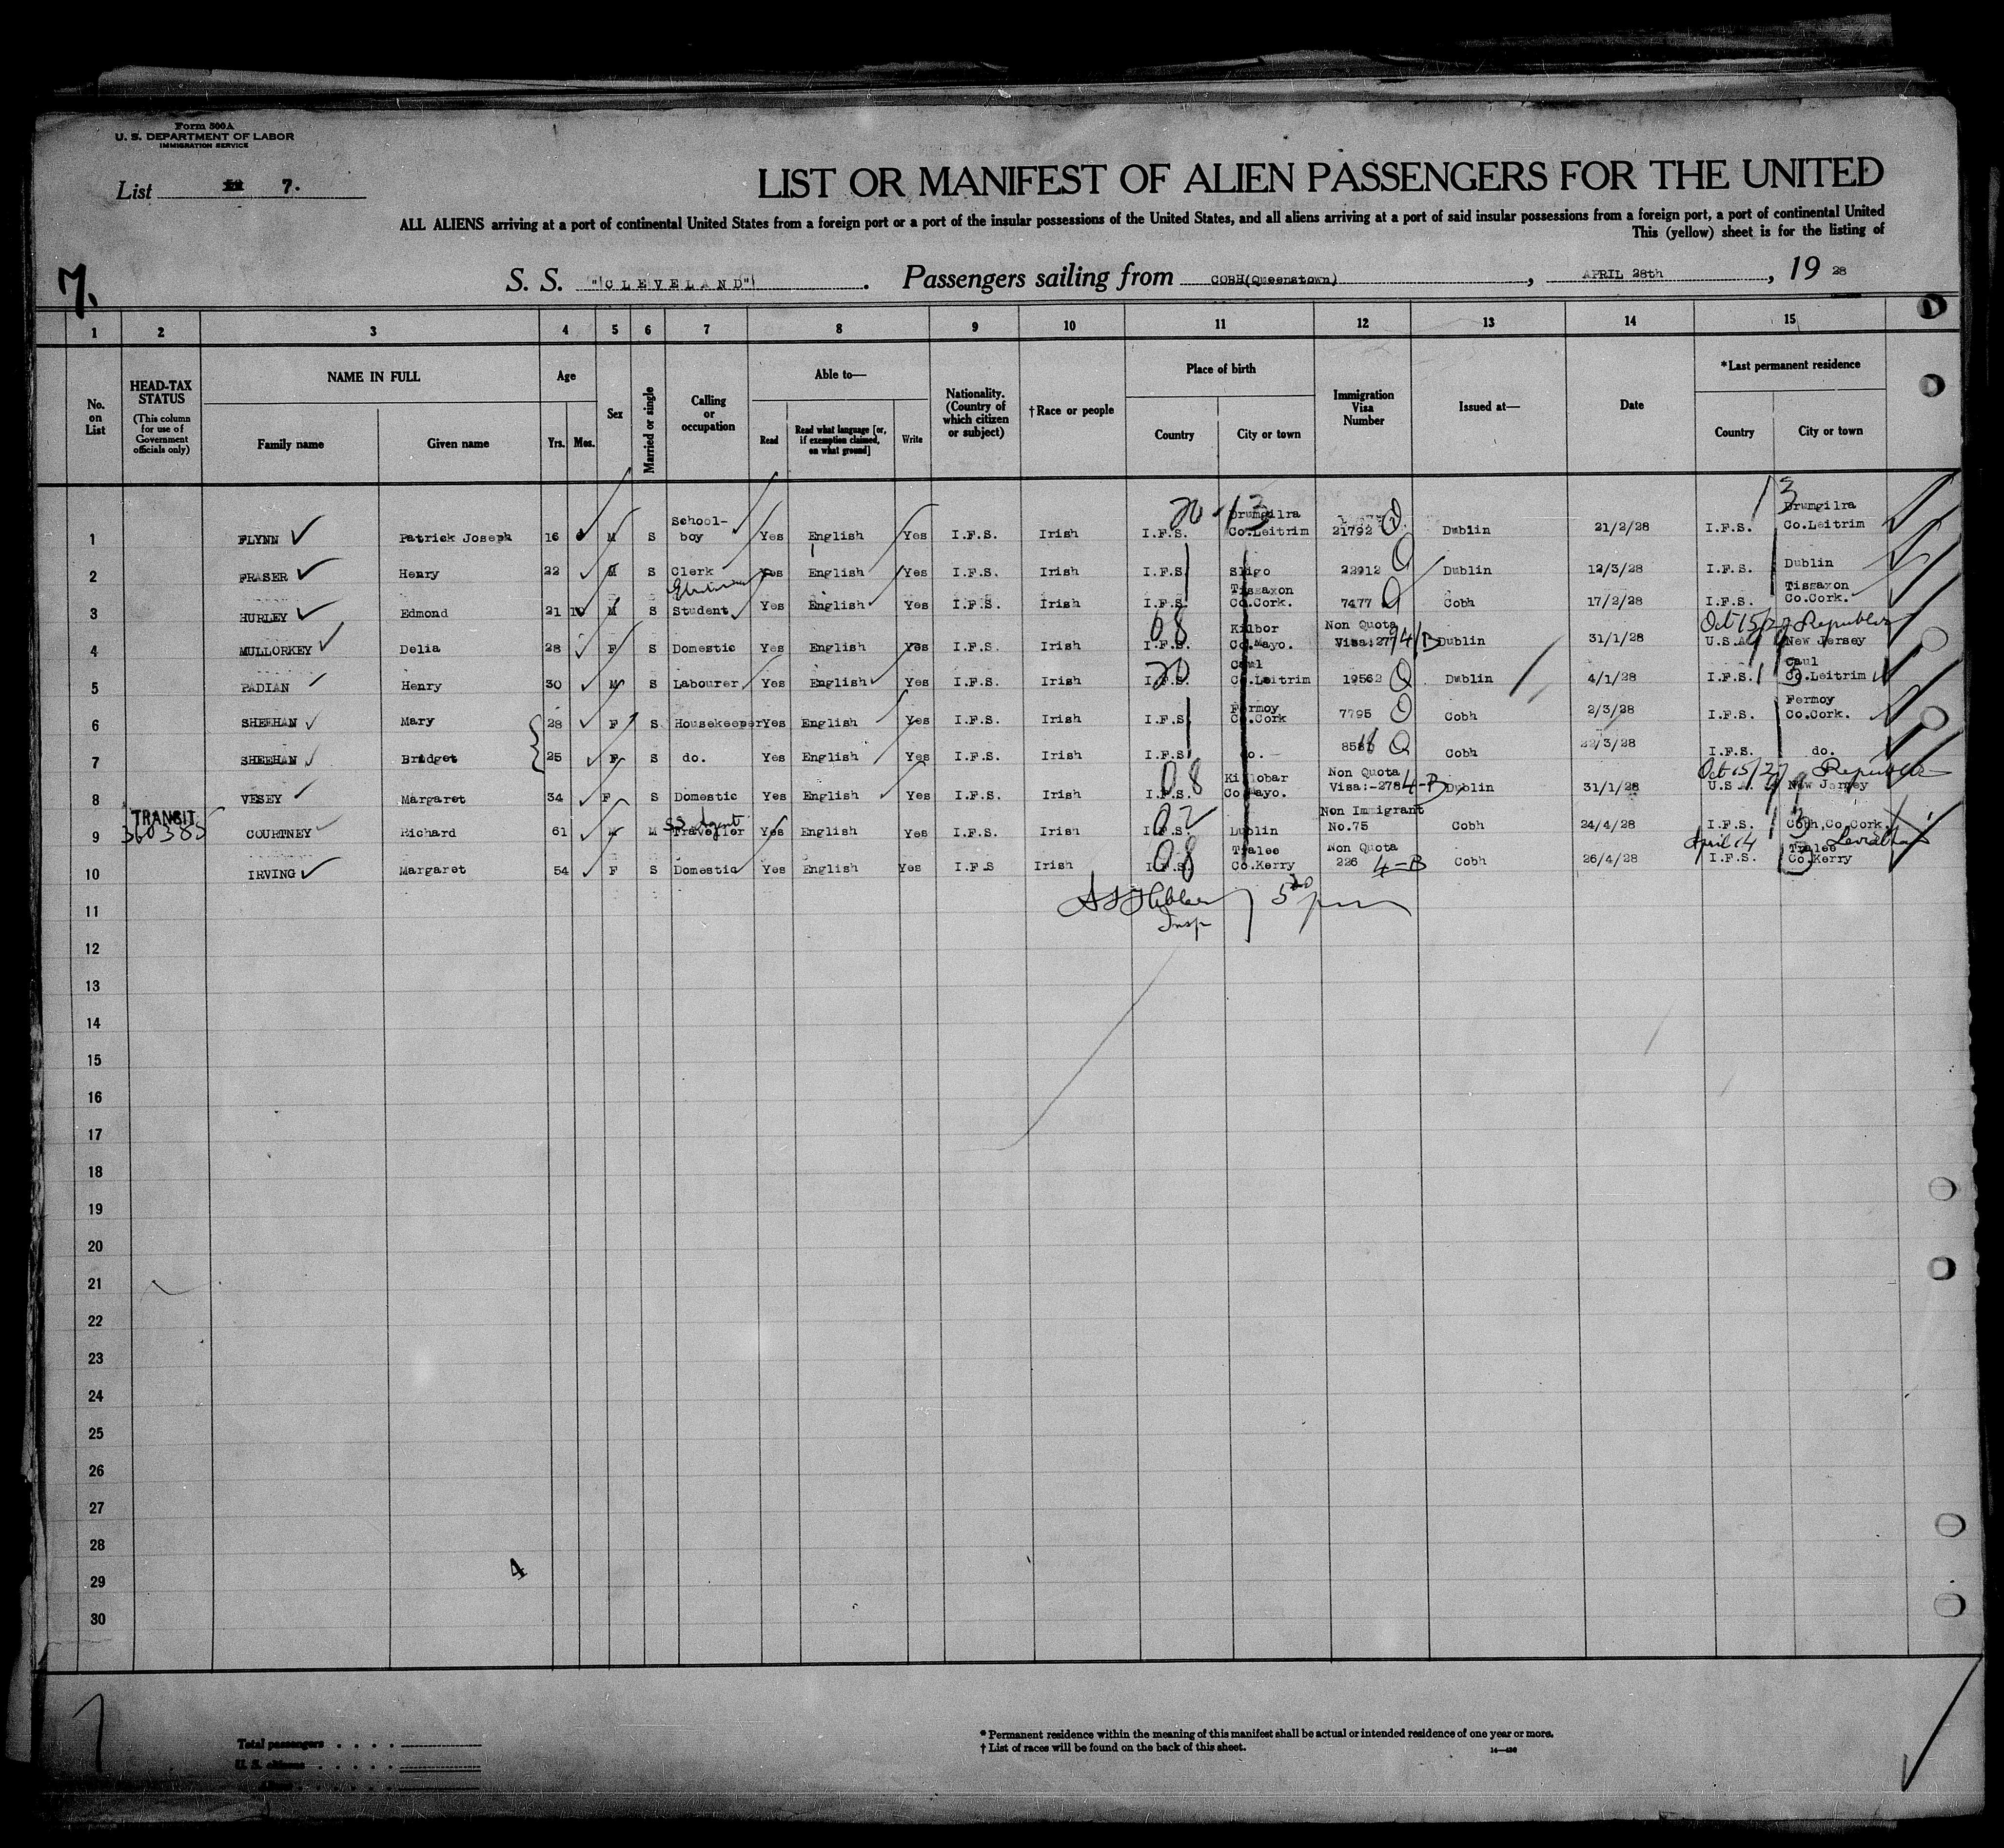 Form 500A
U. S. DEPARTMENT OF LABOR
IMMIGRATION SERVICE
List 7.
LIST OR MANIFEST OF ALIEN PASSENGERS FOR THE UNITED
ALL ALIENS arriving at a port of continental United States from a foreign port or a port of the insular possessions of the United States, and all aliens arriving at a port of said insular possessions from a foreign port, a port of continental United
This (yellow) sheet is for the listing of
7.
S. S. "CLEVELAND". Passengers sailing from COBH(Queenstown), APRIL 28th, 19 28
1 2 3 4 5 6 7 8 9 10 11 12 13 14 15
No. on List
HEAD-TAX STATUS
(This column for use of Government officials only)
NAME IN FULL
Family name Given name
Age
Yrs. Mos.
Sex
Married or single
Calling or occupation
Able to—
Read Read what language [or, if exemption claimed, on what ground] Write
Nationality. (Country of which citizen or subject)
†Race or people
Place of birth
Country City or town
Immigration Visa Number
Issued at—
Date
*Last permanent residence
Country City or town
1 FLYNN Patrick Joseph 16 M S School-boy Yes English Yes I.F.S. Irish I.F.S. Drumgilra Co.Leitrim 21792 Q Dublin 21/2/28 I.F.S. Drumgilra Co.Leitrim
2 FRASER Henry 22 M S Clerk Yes English Yes I.F.S. Irish I.F.S Sligo 22912 Q Dublin 12/3/28 I.F.S. Dublin
3 HURLEY Edmond 21 10 M S Student Yes English Yes I.F.S. Irish I.F.S. Tissaxon Co.Cork. 7477 Q Cobh 17/2/28 I.F.S. Tissaxon Co.Cork.
Oct 15/27 Republic
4 MULLORKEY Delia 28 F S Domestic Yes English Yes I.F.S. Irish I.F.S. 08 Kilbor Co.Mayo. Non Quota Visa:279 4/B Dublin 31/1/28 U.S.A. New Jersey
5 PADIAN Henry 30 M S Labourer Yes English Yes I.F.S. Irish I.F.S. 20 Caul Co.Leitrim 19562 Q Dublin 4/1/28 I.F.S. Caul Co.Leitrim
6 SHEEHAN Mary 28 F S Housekeeper Yes English Yes I.F.S. Irish I.F.S Fermoy Co.Cork 7795 Q Cobh 2/3/28 I.F.S. Fermoy Co.Cork.
7 SHEEHAN Bridget 25 F S do. Yes English Yes I.F.S. Irish I.F.S. do. Q Cobh 22/3/28 I.F.S. do.
Oct 15/27 Republic
8 VESEY Margaret 34 F S Domestic Yes English Yes I.F.S. Irish I.F.S. 08 Killobar Co.Mayo. Non Quota Visa:-278 4-B Dublin 31/1/28 U.S.A. New Jersey
TRANSIT
360385
9 COURTNEY Richard 61 M M Traveller SS Agent Yes English Yes I.F.S. Irish I.F.S. 02 Dublin Non Immigrant No.75 Cobh 24/4/28 I.F.S. Cobh,Co.Cork.
April 14 Leviathan
10 IRVING Margaret 54 F S Domestic Yes English Yes I.F.S Irish I.F.S. 08 Tralee Co.Kerry Non Quota 226 4-B Cobh 26/4/28 I.F.S. Tralee Co.Kerry
11 Insp
12
13
14
15
16
17
18
19
20
21
22
23
24
25
26
27
28
29
4
30
Total passengers
U. S. citizens
Aliens
* Permanent residence within the meaning of this manifest shall be actual or intended residence of one year or more.
† List of races will be found on the back of this sheet.
14—430